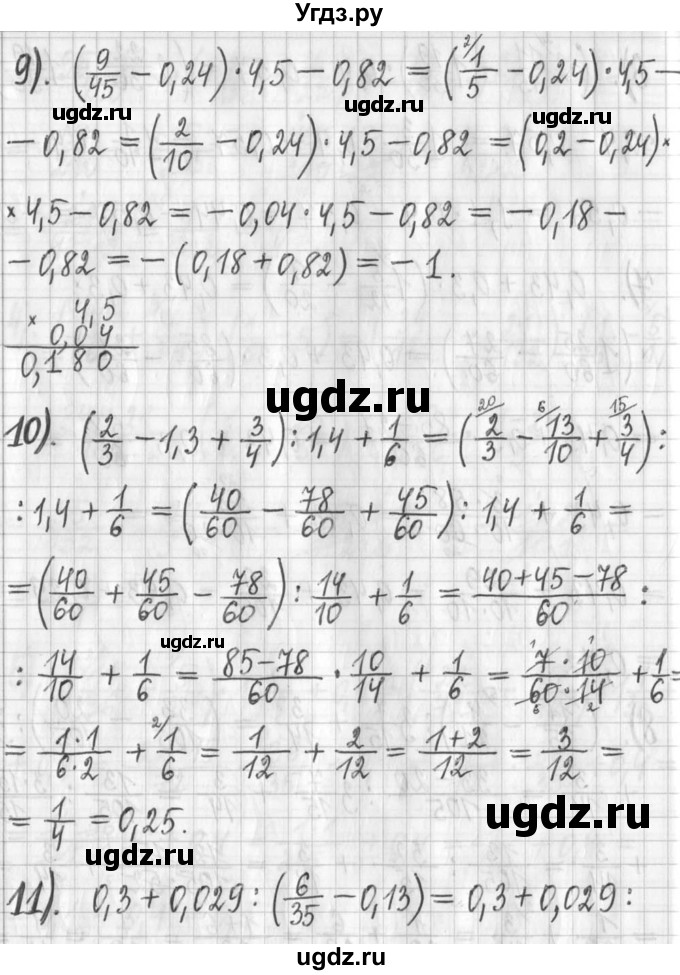 Угдз.ру
9). (9/45 − 0,24) · 4,5 − 0,82 = (²/1/5 − 0,24) · 4,5 −
ugdz.ru ugdz.ru ugdz.ru
− 0,82 = (2/10 − 0,24) · 4,5 − 0,82 = (0,2 − 0,24) ×
× 4,5 − 0,82 = − 0,04 · 4,5 − 0,82 = − 0,18 −
− 0,82 = − (0,18 + 0,82) = − 1.
× 4,5
0,04
0,180
ugdz.ru
10). (2/3 − 1,3 + 3/4) : 1,4 + 1/6 = (²⁰/2/3 − ⁶/13/10 + ¹⁵/3/4) :
: 1,4 + 1/6 = (40/60 − 78/60 + 45/60) : 1,4 + 1/6 =
= (40/60 + 45/60 − 78/60) : 14/10 + 1/6 = 40+45−78/60 :
ugdz.ru
: 14/10 + 1/6 = 85−78/60 · 10/14 + 1/6 = 7 · 10/60 · 14 + 1/6 =
= 1·1/6·2 + ²/1/6 = 1/12 + 2/12 = 1+2/12 = 3/12 =
= 1/4 = 0,25.
ugdz.ru
ugdz.ru
11). 0,3 + 0,029 : (6/35 − 0,13) = 0,3 + 0,029 :
ugdz.ru